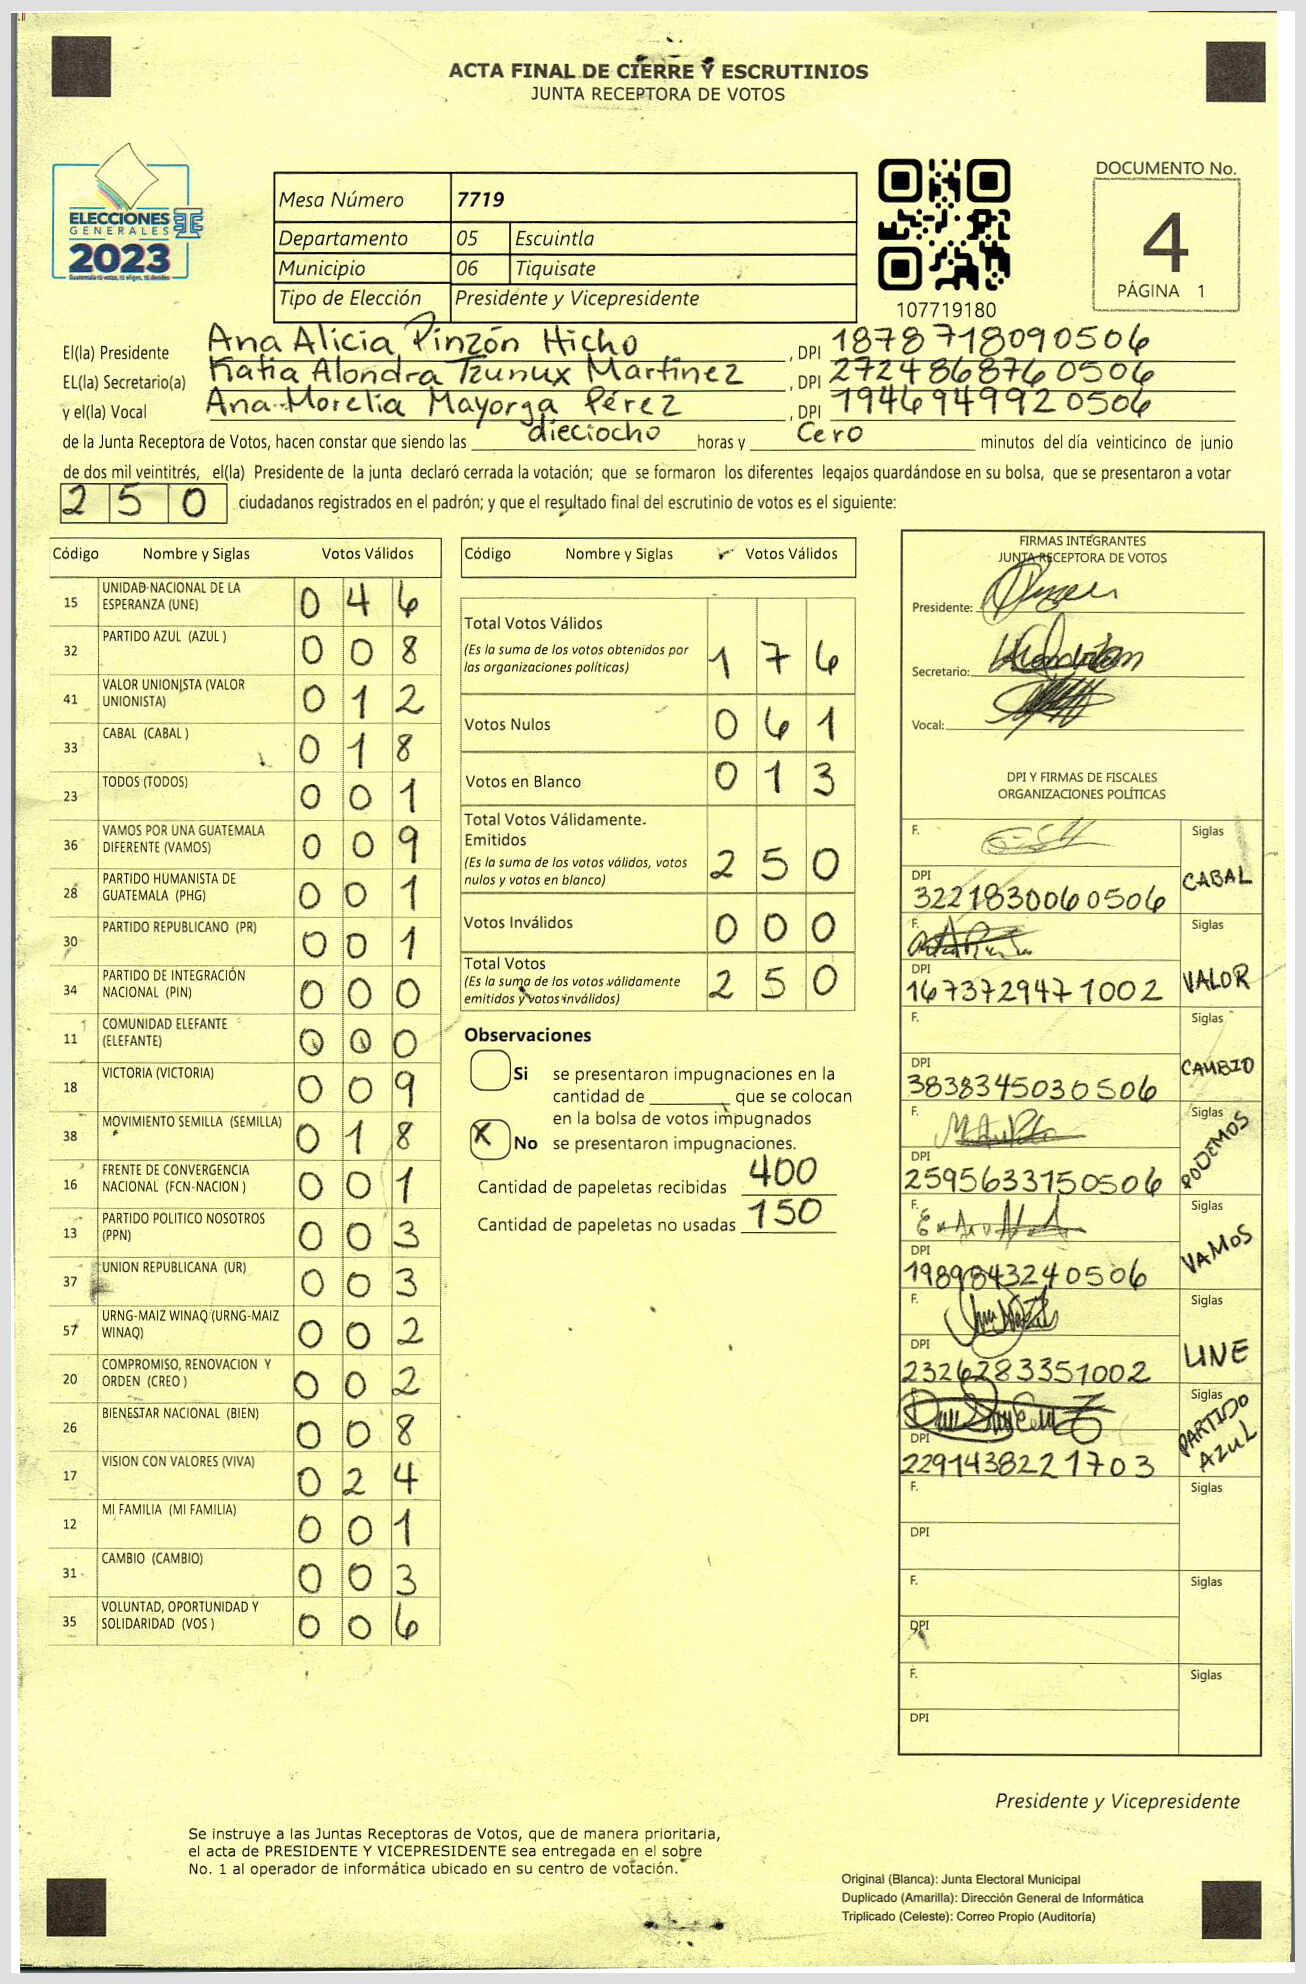 ACTA FINAL DE CIERRE Y ESCRUTINIOS
JUNTA RECEPTORA DE VOTOS
ELECCIONES
GENERALES
2023
Mesa Número 7719
Departamento 05 Escuintla
Municipio 06 Tiquisate
Tipo de Elección Presidente y Vicepresidente
107719180
DOCUMENTO No.
4
PÁGINA 1
El(la) Presidente Ana Alicia Pinzón Hicho , DPI 1878718090506
EL(la) Secretario(a) Katia Alondra Tzunux Martinez , DPI 2724868760506
y el(la) Vocal Ana Morelia Mayorga Pérez , DPI 1946949920506
de la Junta Receptora de Votos, hacen constar que siendo las dieciocho horas y Cero minutos del día veinticinco de junio
de dos mil veintitrés, el(la) Presidente de la junta declaró cerrada la votación; que se formaron los diferentes legajos guardándose en su bolsa, que se presentaron a votar
250 ciudadanos registrados en el padrón; y que el resultado final del escrutinio de votos es el siguiente:
Código Nombre y Siglas Votos Válidos
15 UNIDAD NACIONAL DE LA
ESPERANZA (UNE) 046
32 PARTIDO AZUL (AZUL ) 008
41 VALOR UNIONISTA (VALOR
UNIONISTA) 012
33 CABAL (CABAL ) 018
23 TODOS (TODOS) 001
36 VAMOS POR UNA GUATEMALA
DIFERENTE (VAMOS) 009
28 PARTIDO HUMANISTA DE
GUATEMALA (PHG) 001
30 PARTIDO REPUBLICANO (PR) 001
34 PARTIDO DE INTEGRACIÓN
NACIONAL (PIN) 000
11 COMUNIDAD ELEFANTE
(ELEFANTE) 000
18 VICTORIA (VICTORIA) 009
38 MOVIMIENTO SEMILLA (SEMILLA) 018
16 FRENTE DE CONVERGENCIA
NACIONAL (FCN-NACION ) 001
13 PARTIDO POLITICO NOSOTROS
(PPN) 003
37 UNION REPUBLICANA (UR) 003
57 URNG-MAIZ WINAQ (URNG-MAIZ
WINAQ) 002
20 COMPROMISO, RENOVACION Y
ORDEN (CREO ) 002
26 BIENESTAR NACIONAL (BIEN) 008
17 VISION CON VALORES (VIVA) 024
12 MI FAMILIA (MI FAMILIA) 001
31 CAMBIO (CAMBIO) 003
35 VOLUNTAD, OPORTUNIDAD Y
SOLIDARIDAD (VOS ) 006
Código Nombre y Siglas Votos Válidos
Total Votos Válidos
(Es la suma de los votos obtenidos por
las organizaciones políticas) 176
Votos Nulos 061
Votos en Blanco 013
Total Votos Válidamente
Emitidos
(Es la suma de los votos válidos, votos
nulos y votos en blanco) 250
Votos Inválidos 000
Total Votos
(Es la suma de los votos válidamente
emitidos y votos inválidos) 250
Observaciones
Si se presentaron impugnaciones en la
cantidad de ________ que se colocan
en la bolsa de votos impugnados
X No se presentaron impugnaciones.
Cantidad de papeletas recibidas 400
Cantidad de papeletas no usadas 150
FIRMAS INTEGRANTES
JUNTA RECEPTORA DE VOTOS
Presidente:
Secretario:
Vocal:
DPI Y FIRMAS DE FISCALES
ORGANIZACIONES POLÍTICAS
F. Siglas
DPI CABAL
3221830060506
F. Siglas
DPI VALOR
1673729471002
F. Siglas
DPI CAMBIO
3838345030506
F. Siglas
DPI PODEMOS
2595633750506
F. Siglas
DPI VAMOS
1989843240506
F. Siglas
DPI UNE
2326283351002
Siglas
DPI PARTIDO
AZUL
2291438221703
F. Siglas
DPI
F. Siglas
DPI
F. Siglas
DPI
Presidente y Vicepresidente
Se instruye a las Juntas Receptoras de Votos, que de manera prioritaria,
el acta de PRESIDENTE Y VICEPRESIDENTE sea entregada en el sobre
No. 1 al operador de informática ubicado en su centro de votación.
Original (Blanca): Junta Electoral Municipal
Duplicado (Amarilla): Dirección General de Informática
Triplicado (Celeste): Correo Propio (Auditoría)